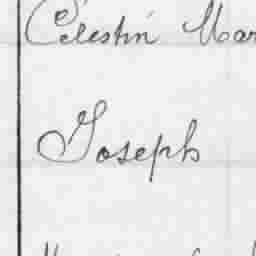 Célestin Mar
Joseph